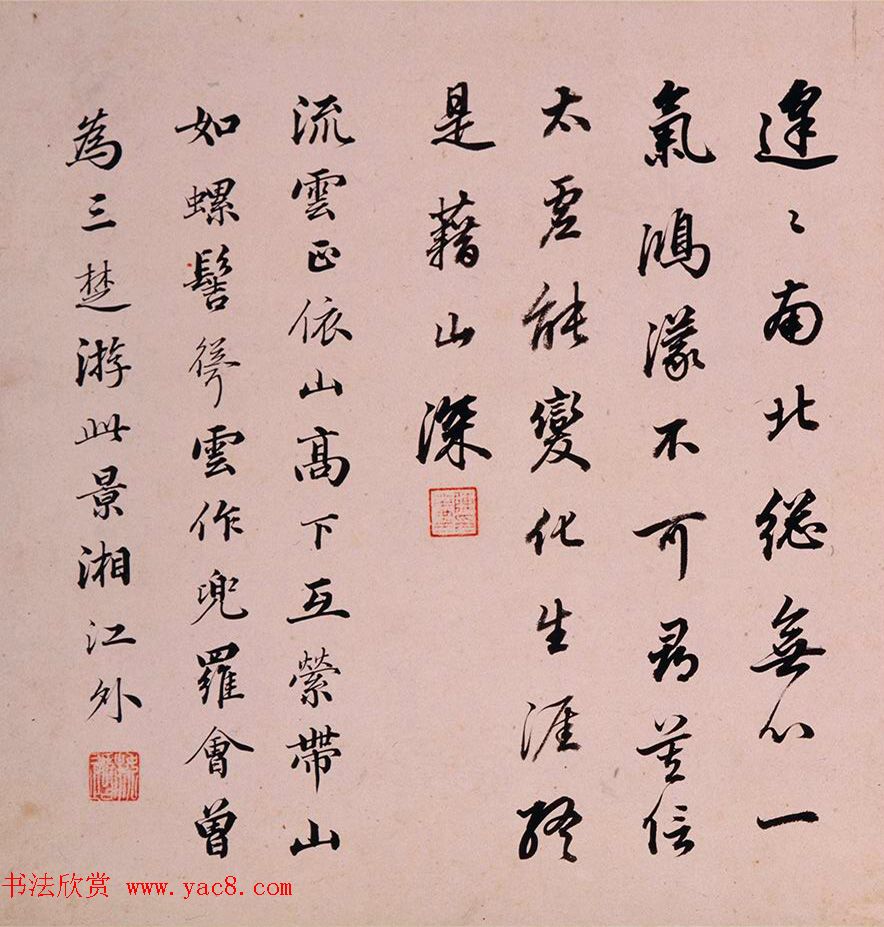 逢〻南北總無心一
氣鴻濛不可尋莫信
太虛能變化生涯終
是藉山深
流雲正依山高下互縈帶山
如螺髻聳雲作兜羅會曾
為三楚游此景湘江外
书法欣赏 www.yac8.com